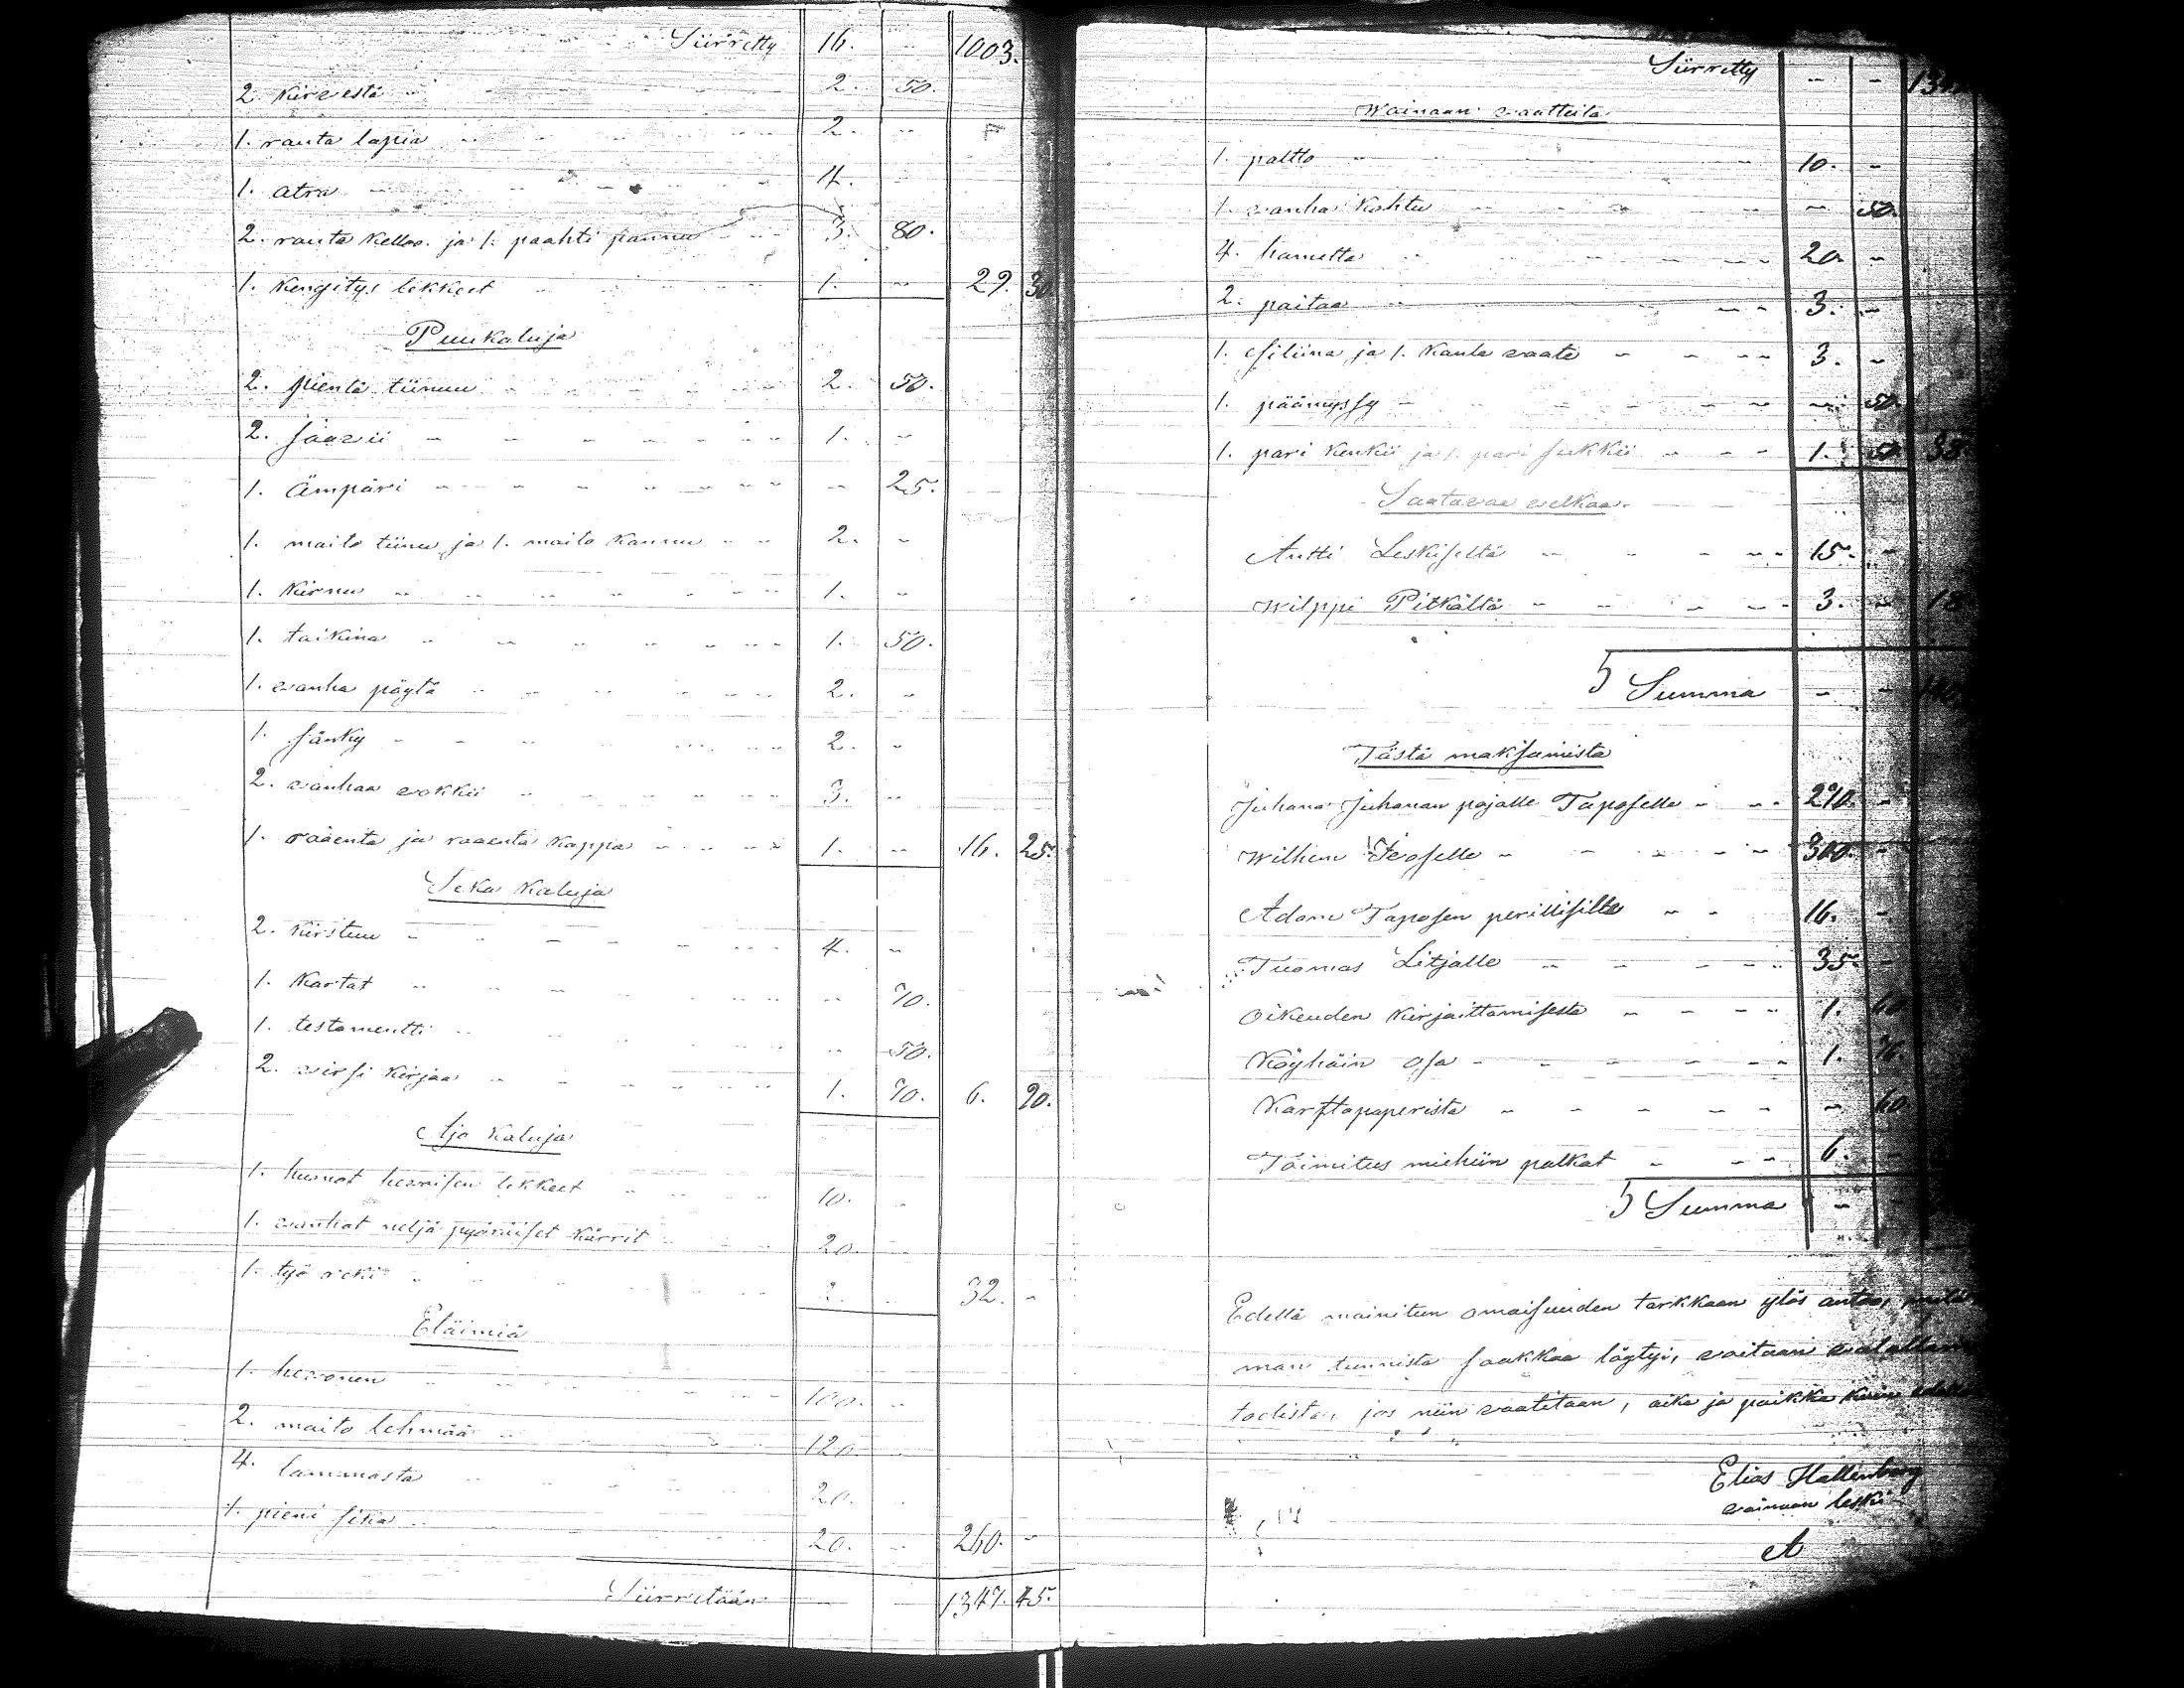 Siirretty 16. " 1003.
2. kirvestä " 2. 50.
1. rauta lapia " 2. "
1. atra " 4.
2. rauta kelloa ja 1. paahti pannu " 3. 80.
1. kengitys likkeet " 1. " 29. 30
Puukaluja
2. pientä tiinuu " 2. 50.
2. saavii " 1. "
1. Ämpäri " " 25.
1. maito tiinu ja 1. maito kannu " 2. "
1. kirnu " 1. "
1. taikina " 1. 50.
1. vanha pöytä " 2. "
1. sänky " 2. "
2. vanhaa vokkii " 3. "
1. raaenta ja raaenta kappa " 1. " 16. 25.
Seka kaluja
2. kirstuu " 4. "
1. kartat " " 70.
1. testamentti " " 50.
2. virsi kirjaa " 1. 70. 6. 90.
Ajo kaluja
1. huonot hevoisen likkeet " 10. "
1. vanhat neljä pyöräiset kärrit " 20. "
1. työ reki " 2. " 32. "
Eläimiä
1. hevonen " 100. "
2. maito lehmää " 120. "
4. lammasta " 20. "
1. pieni sika " 20. " 260. "
Siirretään " " 1347. 45.
Siirretty " "
Wainaan vaatteita
1. paltto " 10. "
1. vanha kohtu " " 50.
4. hametta " 20. "
2. paitaa " 3. "
1. siliina ja 1. kaula vaate " 3. "
1. päämyssy " " 50.
1. pari kenkii ja 1. pari sukkii " 1. 38.
Saatavaa velkaa.
Antti Leskiseltä " 15. "
Wilppi Pitkältä " 3. " 18
Summa " "
Tästä maksamista
Juhana Juhanan pojalle Taposelle " 290. "
Wilhem " 300. "
Adam Taposen perillisille " 16. "
Tuomas Litjalle " 35. "
Oikeuden kirjaittamisesta " 1. 60
Köyhäin osa " 1.
Karttapaperista " " 60.
Toimitus miehiin palkat " 6. "
Summa "
Edellä mainitun omaisuuden tarkkaan ylös antaa,
man tunnista saakkaa löytyi, voitaan
todistaa, jos niin vaatitaan, aika ja paikka kuin
Elias Hallenberg
vainaan leski
A